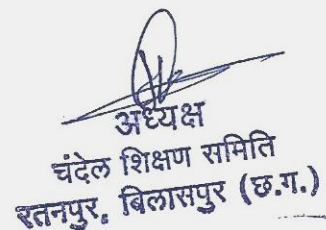 अध्यक्ष
चंदेल शिक्षण समिति
रतनपुर, बिलासपुर (छ.ग.)